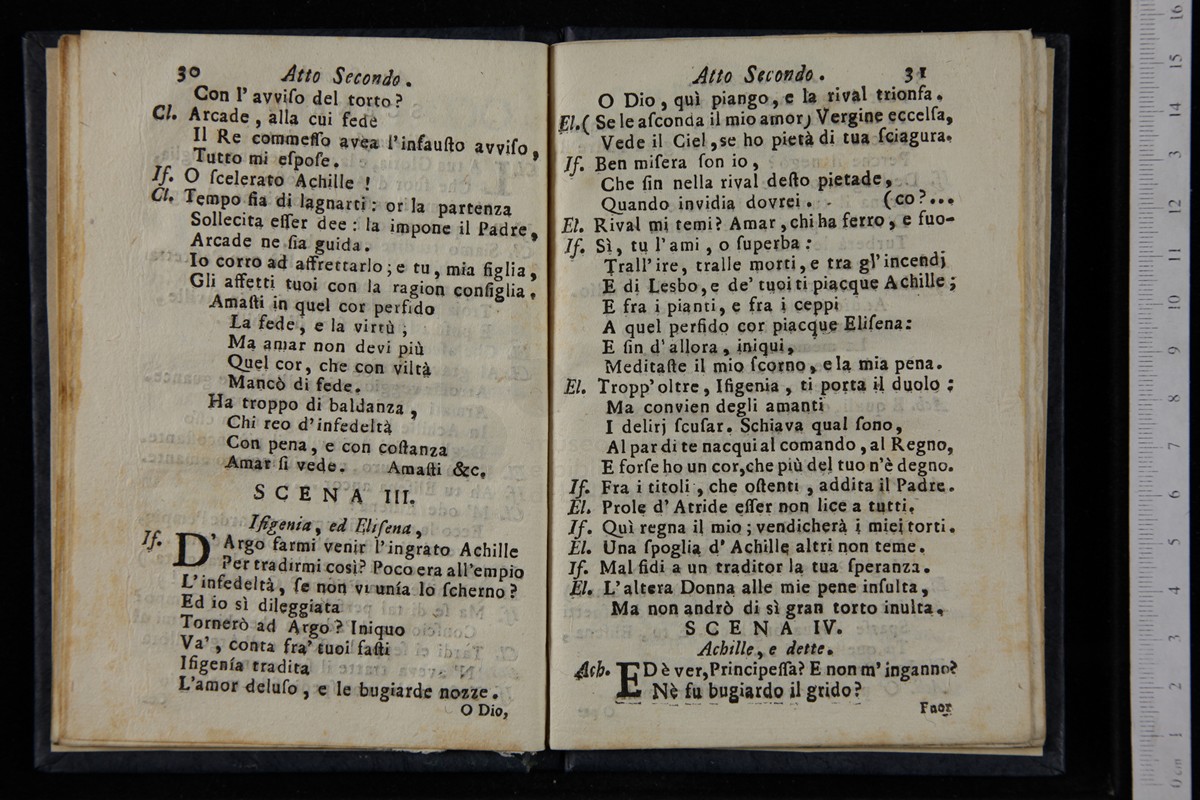 30 Atto Secondo.
Con l' avviſo del torto?
Cl. Arcade, alla cui fede
Il Re commeſſo avea l'infauſto avviſo,
Tutto mi eſpoſe.
If. O ſcelerato Achille !
Cl. Tempo ſia di lagnarti: or la partenza
Sollecita eſſer dee: la impone il Padre,
Arcade ne ſia guida.
Io corro ad affrettarlo; e tu, mia figlia,
Gli affetti tuoi con la ragion conſiglia.
Amaſti in quel cor perfido
La fede, e la virtù;
Ma amar non devi più
Quel cor, che con viltà
Mancò di fede.
Ha troppo di baldanza,
Chi reo d'infedeltà
Con pena, e con coſtanza
Amar ſi vede. Amaſti &c.
SCENA III.
Ifigenia, ed Eliſena,
If. D' Argo farmi venir l'ingrato Achille
Per tradirmi così? Poco era all'empio
L'infedeltà, ſe non vi unía lo ſcherno?
Ed io sì dileggiata
Tornerò ad Argo? Iniquo
Va', conta fra' tuoi faſti
Ifigenía tradita
L'amor deluſo, e le bugiarde nozze.
O Dio,
Atto Secondo. 31
O Dio, quì piango, e la rival trionfa.
El.( Se le aſconda il mio amor) Vergine eccelſa,
Vede il Ciel, se ho pietà di tua ſciagura.
If. Ben miſera ſon io,
Che ſin nella rival deſto pietade,
Quando invidia dovrei. (co?...
El. Rival mi temi? Amar, chi ha ferro, e fuo-
If. Sì, tu l'ami, o ſuperba:
Trall'ire, tralle morti, e tra gl'incendj
E di Lesbo, e de' tuoi ti piacque Achille;
E fra i pianti, e fra i ceppi
A quel perfido cor piacque Eliſena:
E ſin d'allora, iniqui,
Meditaſte il mio ſcorno, e la mia pena.
El. Tropp'oltre, Ifigenia, ti porta il duolo;
Ma convien degli amanti
I delirj ſcuſar. Schiava qual ſono,
Al par di te nacqui al comando, al Regno,
E forſe ho un cor, che più del tuo n'è degno.
If. Fra i titoli, che oſtenti, addita il Padre.
El. Prole d' Atride eſſer non lice a tutti.
If. Quì regna il mio; vendicherà i miei torti.
El. Una ſpoglia d' Achille altri non teme.
If. Mal fidi a un traditor la tua ſperanza.
El. L'altera Donna alle mie pene inſulta,
Ma non andrò di sì gran torto inulta.
SCENA IV.
Achille, e dette.
Ach. ED è ver, Principeſſa? E non m'inganno?
Nè fu bugiardo il grido?
Fuor
16
15
14
13
12
11
10
9
8
7
6
5
4
3
2
1
0 cm